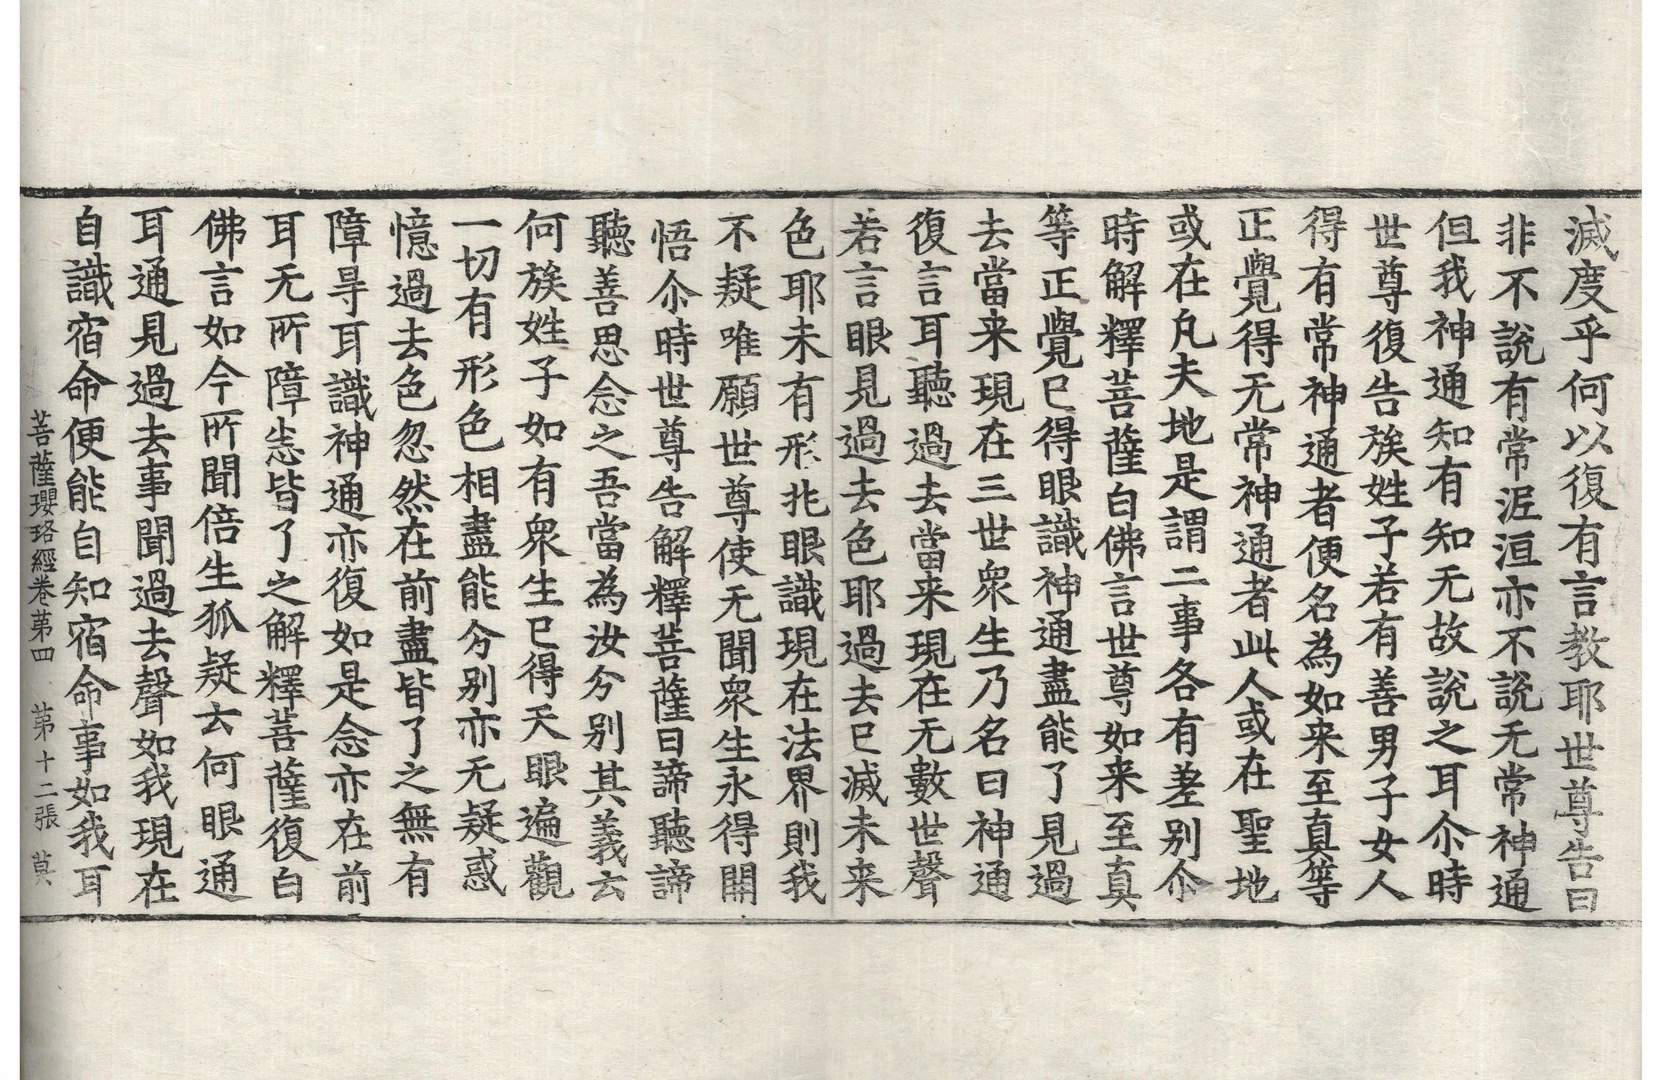 滅度乎何以復有言教耶世尊告曰
非不說有常泥洹亦不說无常神通
但我神通知有知无故說之耳尒時
世尊復告族姓子若有善男子女人
得有常神通者便名為如来至真等
正覺得无常神通者此人或在聖地
或在凡夫地是謂二事各有差别尒
時解釋菩薩白佛言世尊如来至真
等正覺已得眼識神通盡能了見過
去當来現在三世衆生乃名曰神通
復言耳聽過去當来現在无數世聲
若言眼見過去色耶過去已滅未来
色耶未有形兆眼識現在法界則我
不疑唯願世尊使无聞衆生永得開
悟尒時世尊告解釋菩薩曰諦聽諦
聽善思念之吾當為汝分别其義云
何族姓子如有衆生已得天眼遍觀
一切有形色相盡能分别亦无疑惑
憶過去色忽然在前盡皆了之無有
障㝵耳識神通亦復如是念亦在前
耳无所障㝵皆了之解釋菩薩復白
佛言如今所聞倍生狐疑云何眼通
耳通見過去事聞過去聲如我現在
自識宿命便能自知宿命事如我耳
菩薩瓔珞經卷第四　第十二張　莫